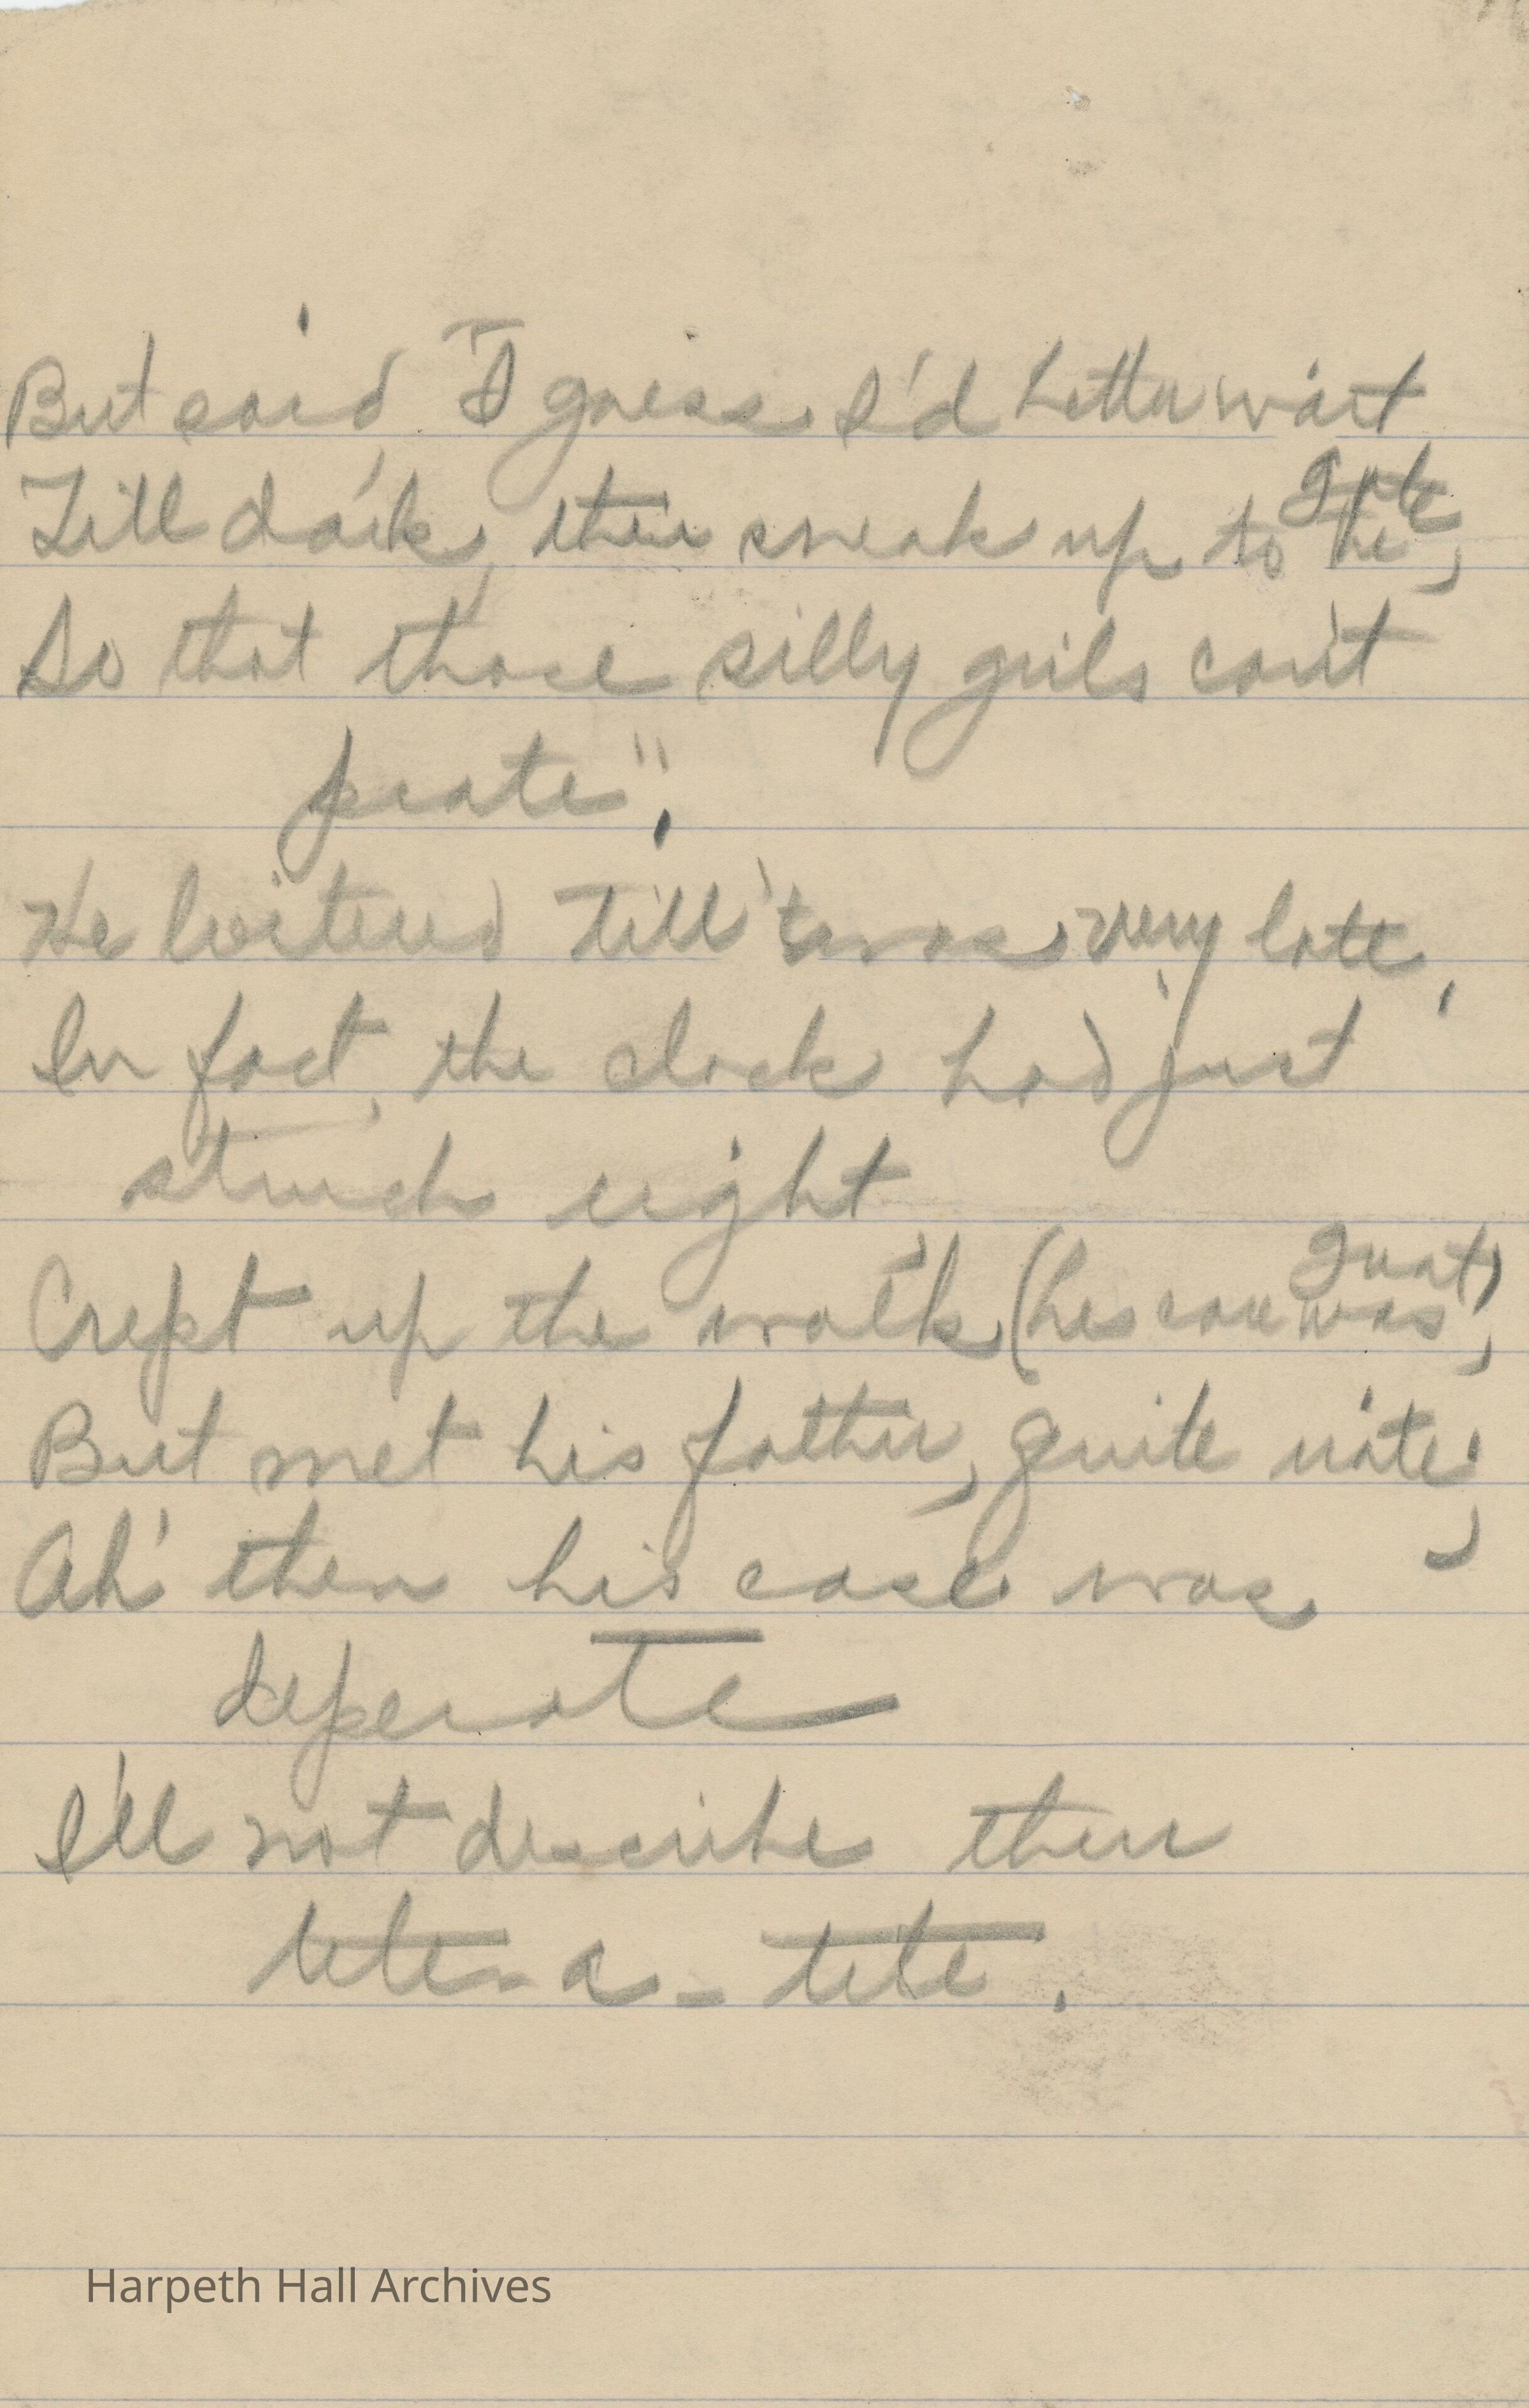 But said, "I guess I'd better wait
Till dark, then sneak up to the gate,
So that those silly girls can't
prate".
He loitered till 'twas very late,
In fact, the clock had just
struck eight
Crept up the walk, (his care was great),
But met his father, quite irate;
Ah' then his case was
desperate
I'll not describe their
tete-a-tete.
Harpeth Hall Archives